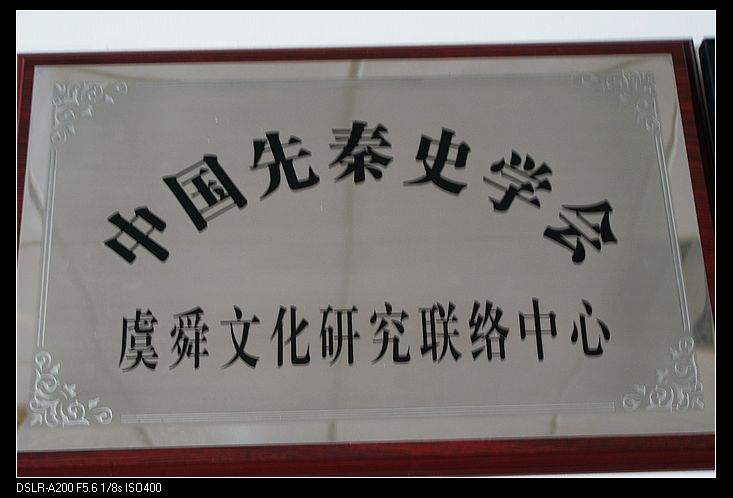 中国先秦史学会
虞舜文化研究联络中心
DSLR-A200 F5.6 1/8s ISO400